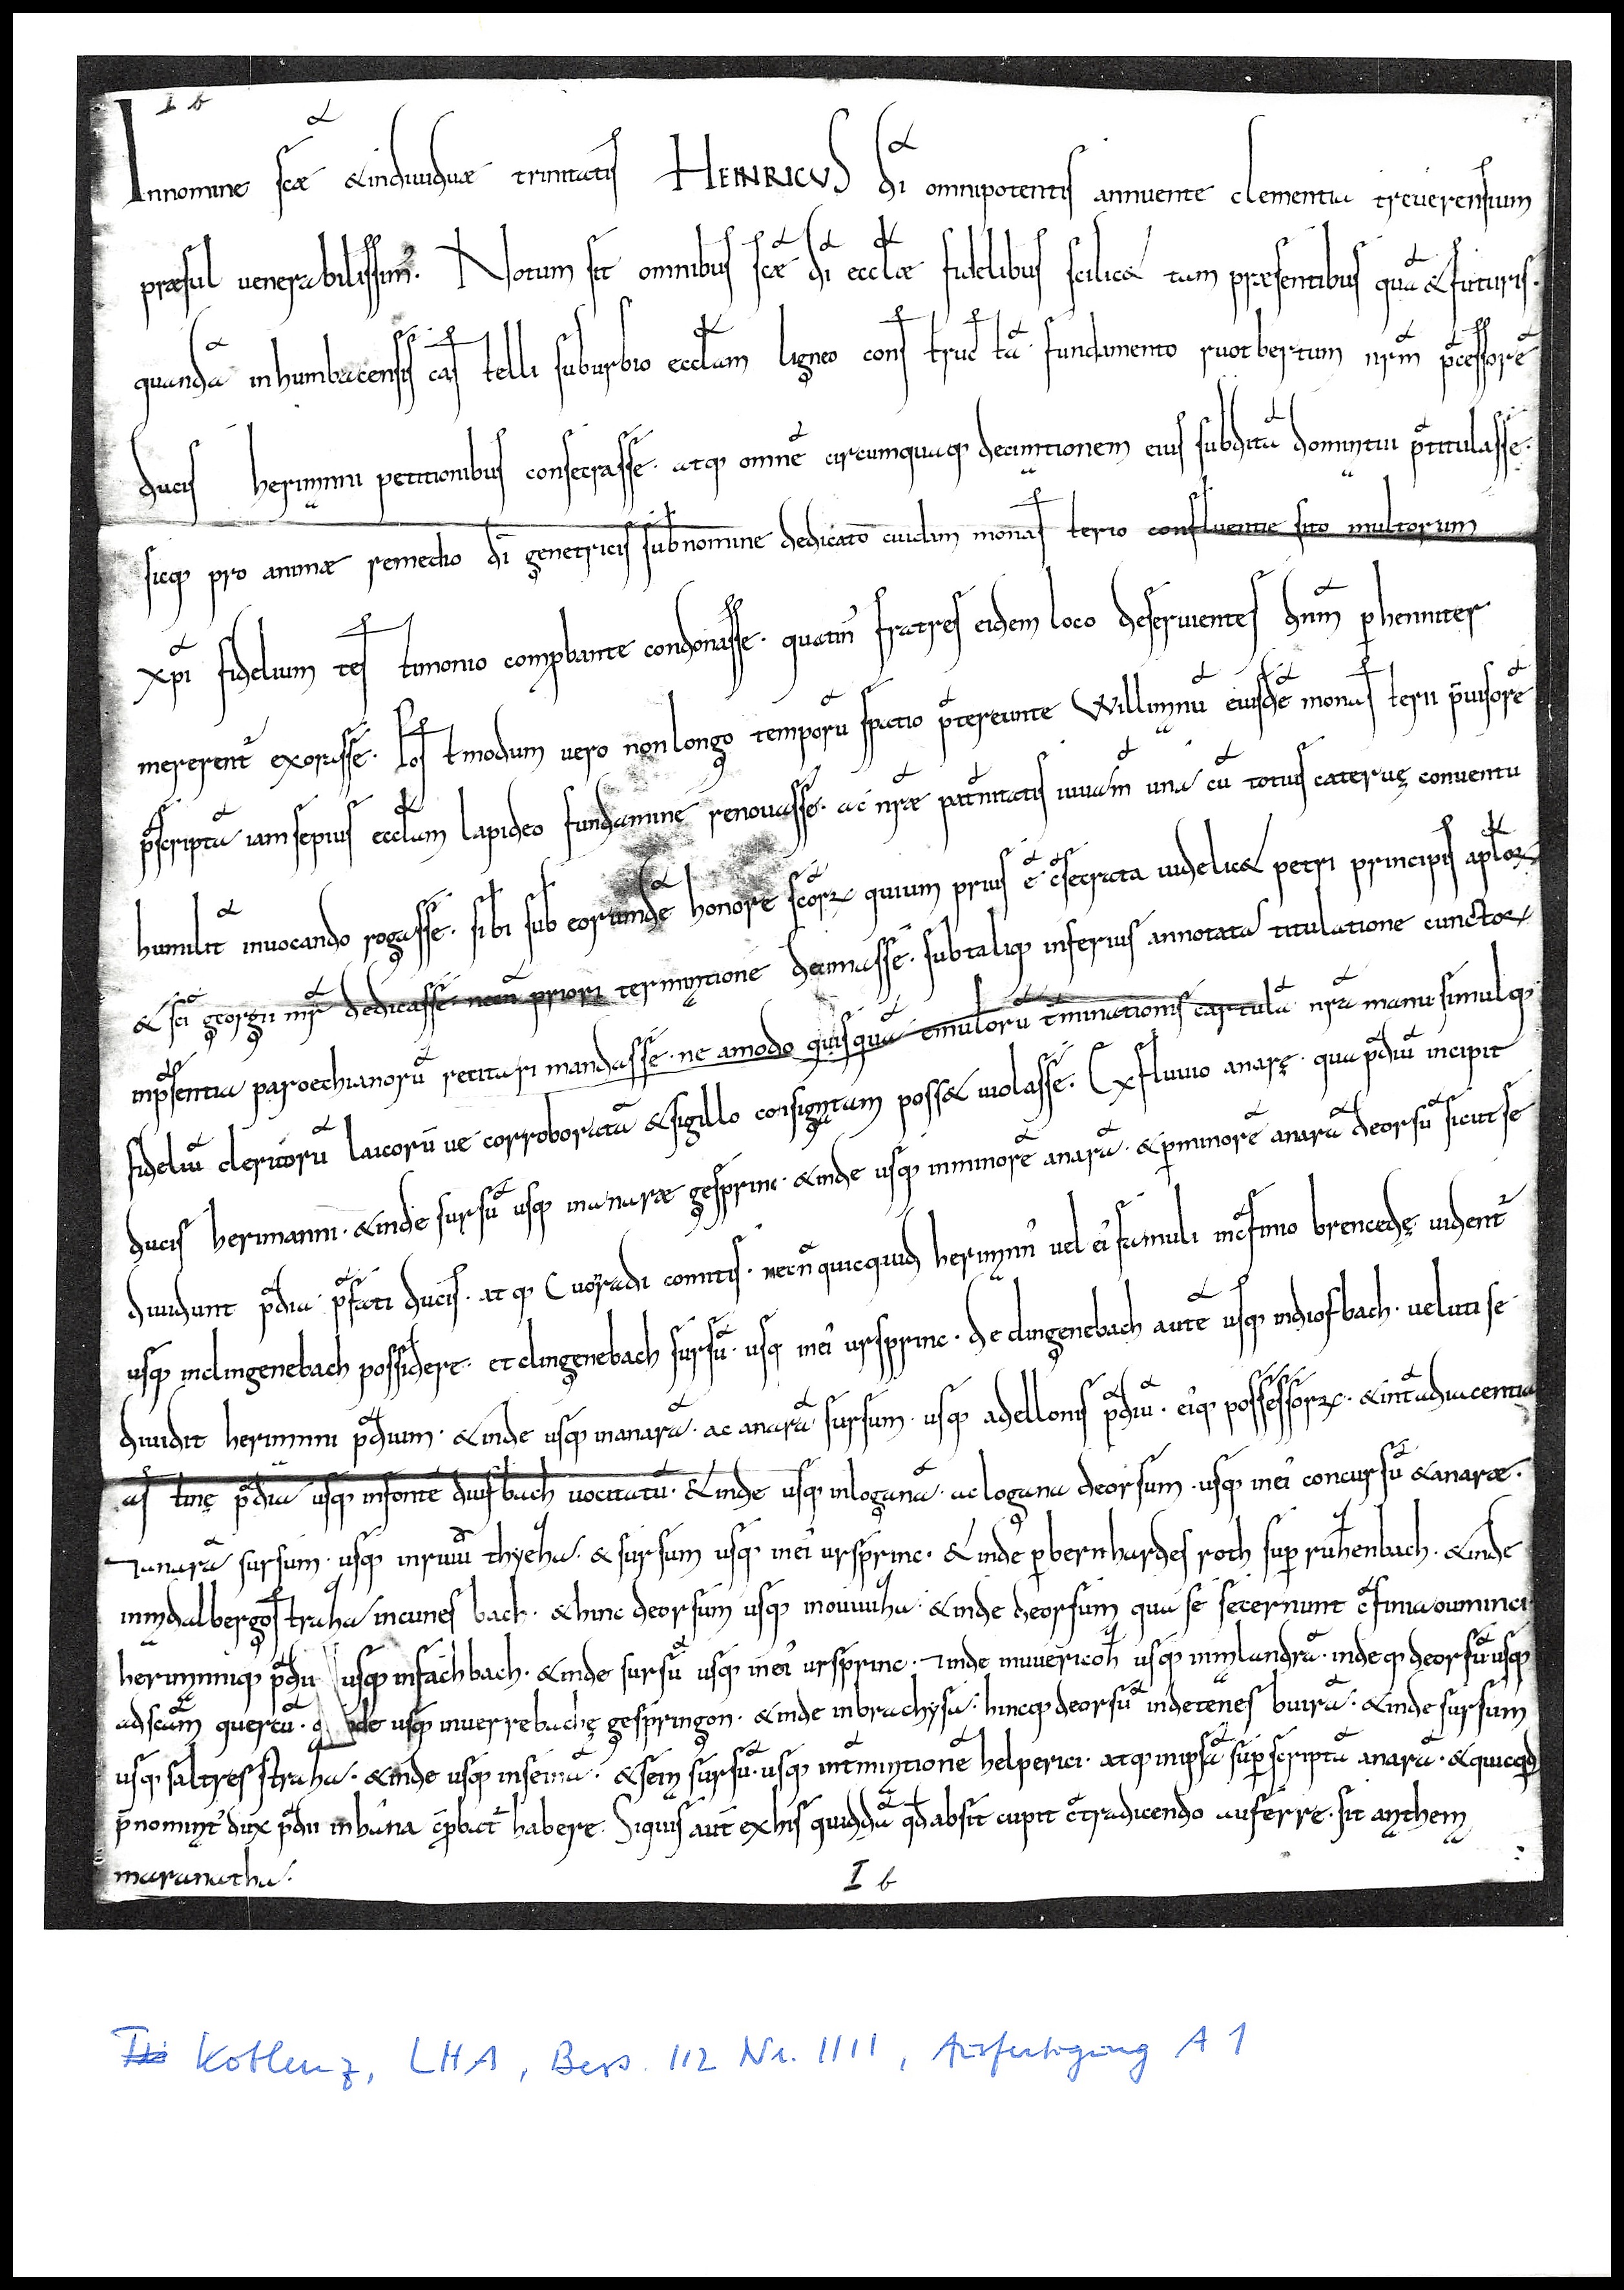 I b
Innomine scæ & indiuiduæ trinitatis HEINRICUS dī omnipotentis annuente clementia treuerensium
præsul uenerabilissim'. Notum sit omnibus scæ dī ecclæ fidelibus scilic& tam præsentibus quā & futuris.
quandā inhumbacensis castelli suburbio ecclam ligneo constructā fundamento ruotbertum nrm p̄cessorē
ducis herimanni petitionibus consecrasse. atq; omnē circumquaq; decimationem eius subditā dominatui p̄titulasse.
sicq; pro animæ remedio dī genetricis sub nomine dedicato cuidam monasterio confluentie sito multorum
xp̄i fidelium testimonio comprobante condonasse. quatin' fratres eidem loco deseruientes dnm perhenniter
mererent' exorasse. Postmodum uero non longo temporū spatio p̄tereunte Willimannū eiusdē monasterii p̄uisorē
p̄scriptā iam sepius ecclam lapideo fundamine renouasse. ac nræ pat̄nitatis iuuam̄ una cū totius cateruę conuentu
humilit̄ inuocando rogasse. sibi sub eorundē honore scōrꝝ quium prius ē c̄secrata uidelic& petri principis aploꝝ
& sc̄i georgii mr̄ dedicasse. necn̄ priori terminatione decimasse. subtaliq; inferius annotata titulatione cunctoꝝ
inp̄sentia paroechianorū recitari mandasse. ne amodo quisquā emulorū t̄minationis cartulā nrā manu simulq;
fideliū clericorū laicorū ue corroboratā & sigillo consignatam poss& uiolasse. Ex fluuio anarę. qua p̄diū incipit
ducis herimanni. & inde sursū usq; inanaræ gesprinc. & inde usq; inminorē anarā. & p minorē anarā deorsū sicut se
diuidunt p̄dia p̄fati ducis. atq; Cuonradi comitis. necn̄ quicquid herimann' uel ei' famuli inc̄finio brencedę uident'
usq; inclingenebach possidere. et clingenebach sursū. usq; inei' ursprinc. De clingenebach autē usq; indiosbach. ueluti se
diuidit herimanni p̄dium. & inde usq; inanarā. ac anarā sursum. usq; adellonis p̄diū. ei'q; possessorꝝ. & int̄adiacentia
astinę p̄dia usq; infontē diufsbach uocitatū. & inde usq; inloganā. ac logana deorsum. usq; inei' concursū & anaræ.
⁊ anarā sursum. usq; inriuū thyeha. & sursum usq; inei' ursprinc. & inde p bernhardes roth sup ruhenbach. & inde
inmadalbergostraha incunes bach. & hinc deorsum usq; inouuiha. & inde deorsum qua se secernunt c̄finia ouuinci
herimanniq; p̄dii usq; infachbach. & inde sursū usq; inei' ursprinc. ⁊ inde inuuericoh usq; inmylandrā. indeq; deorsū usq;
adscām quercū. & inde usq; inuerrebachę gespringon. & inde inbrachysa. hincq; deorsū indetenes buirā. & inde sursum
usq; saltres straha. & inde usq; inseinā. & sein sursū. usq; int̄minationē helperici. atq; inipsā sup scriptā anarā. & quicqd
p̄nominat' dux p̄dii inhana c̄probat' habere. Siquis aut̄ exhis quiddā qd absit cupit c̄tradicendo auferre. sit anathema
maranatha.
I b
Koblenz, LHA, Best. 112 Nr. 1111, Ausfertigung A 1